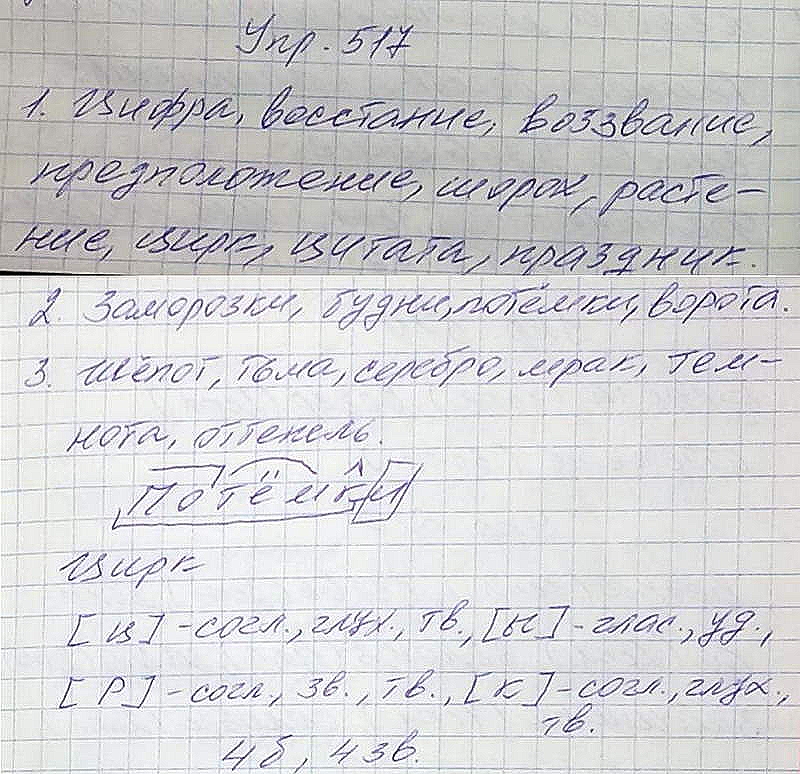 Упр. 517
1. Цифра, восстание, воззвание,
предположение, шорох, расте-
ние, цирк, цитата, праздник.
2. Заморозки, будни, потёмки, ворота.
3. Шёпот, тьма, серебро, мрак, тем-
нота, оттепель.
Потёмки
Цирк
[ц] - согл., глух., тв., [ы] - глас., уд.,
[Р] - согл., зв., тв., [к] - согл., глух.,
тв.
4 б, 4 зв.